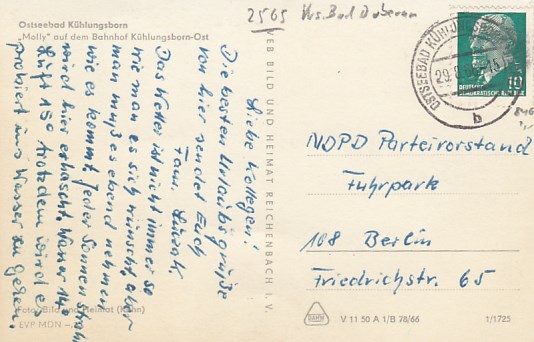 2565 Krs. Bad Doberan
Ostseebad Kühlungsborn
„Molly" auf dem Bahnhof Kühlungsborn-Ost
Liebe Kollegen!
Die besten Urlaubsgrüße
von hier sendet Euch
Fam.
Das Wetter ist nicht immer so
wie man es sich wünscht, aber
man muß es eben nehmen
wie es kommt. Jeder Sonnenstrahl
wird hier erhascht. Wasser
Luft 15° trotzdem wird es
probiert ins Wasser zu gehen.
Foto: Bild und Heimat (Kühn)
EVP MDN
VEB BILD UND HEIMAT REICHENBACH I. V.
OSTSEEBAD KÜHLUNGSBORN
29.
b
10
DEUTSCHE
DEMOKRATISCHE
NDPD Parteivorstand
Fuhrpark
108 Berlin
Friedrichstr. 65
V 11 50 A 1/B 78/66
1/1725